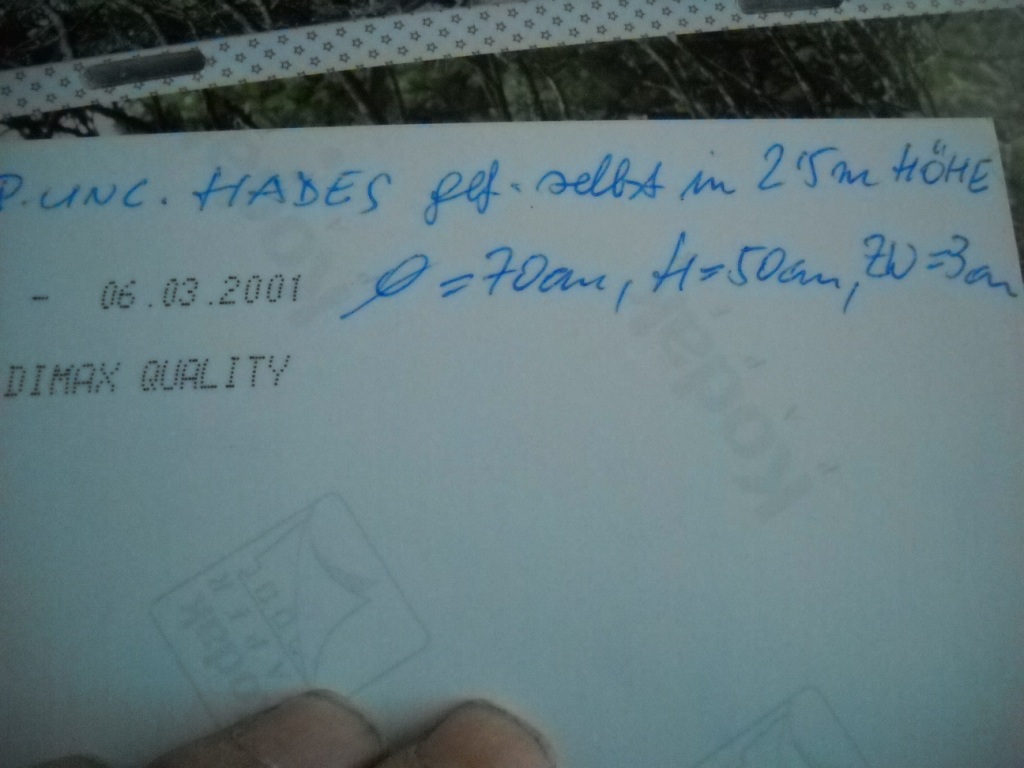 P. UNC. HADES gef. selbst in 25m HÖHE
Ø = 70cm, H = 50cm, ZW = 3cm
- 06.03.2001
DIMAX QUALITY
Kodak